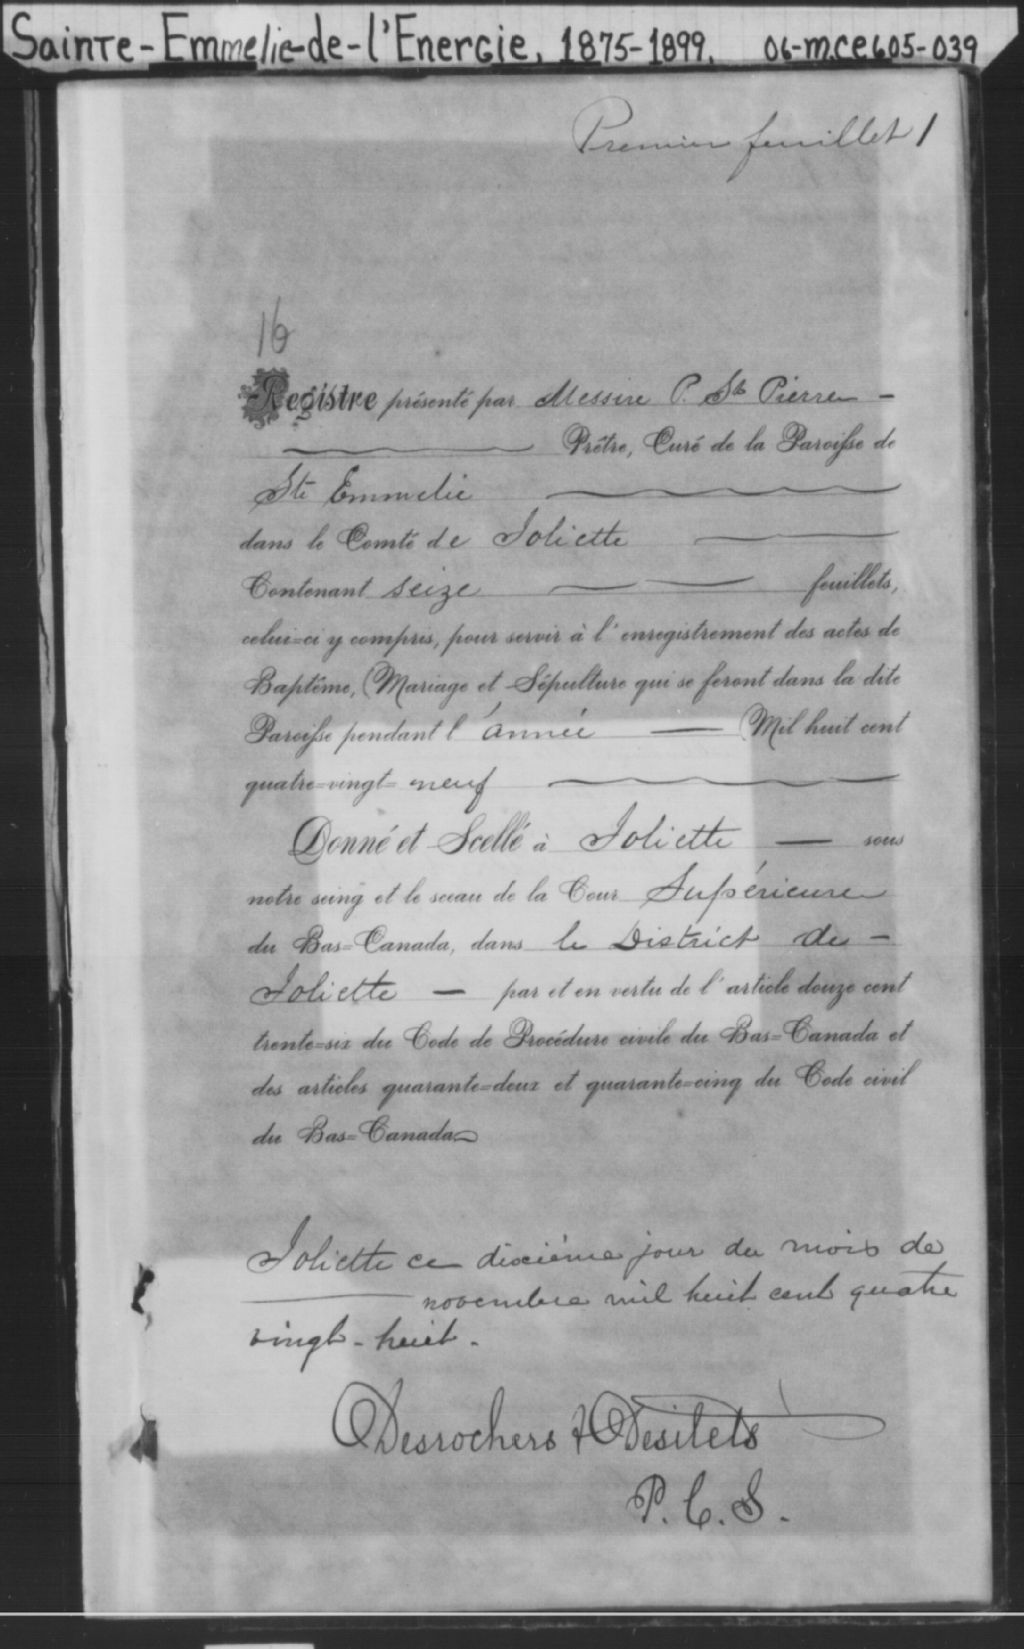 Sainte-Emmelie-de-l'Energie, 1875-1899. 06-M.CE605-039
Premier feuillet 1
16
Registre présenté par Messire P. St Pierre —
Prêtre, Curé de la Paroisse de
Ste Emmelie
dans le Comté de Joliette
Contenant seize feuillets,
celui=ci y compris, pour servir à l'enregistrement des actes de
Baptême, Mariage et Sépulture qui se feront dans la dite
Paroisse pendant l'année — Mil huit cent
quatre=vingt= neuf
Donné et Scellé à Joliette — sous
notre seing et le sceau de la Cour Supérieure
du Bas=Canada, dans le District de —
Joliette — par et en vertu de l'article douze cent
trente=six du Code de Procédure civile du Bas=Canada et
des articles quarante=deux et quarante=cinq du Code civil
du Bas=Canada
Joliette ce dixième jour du mois de
novembre mil huit cent quatre
vingt-huit.
Desrochers & Desilets
P. C. S.